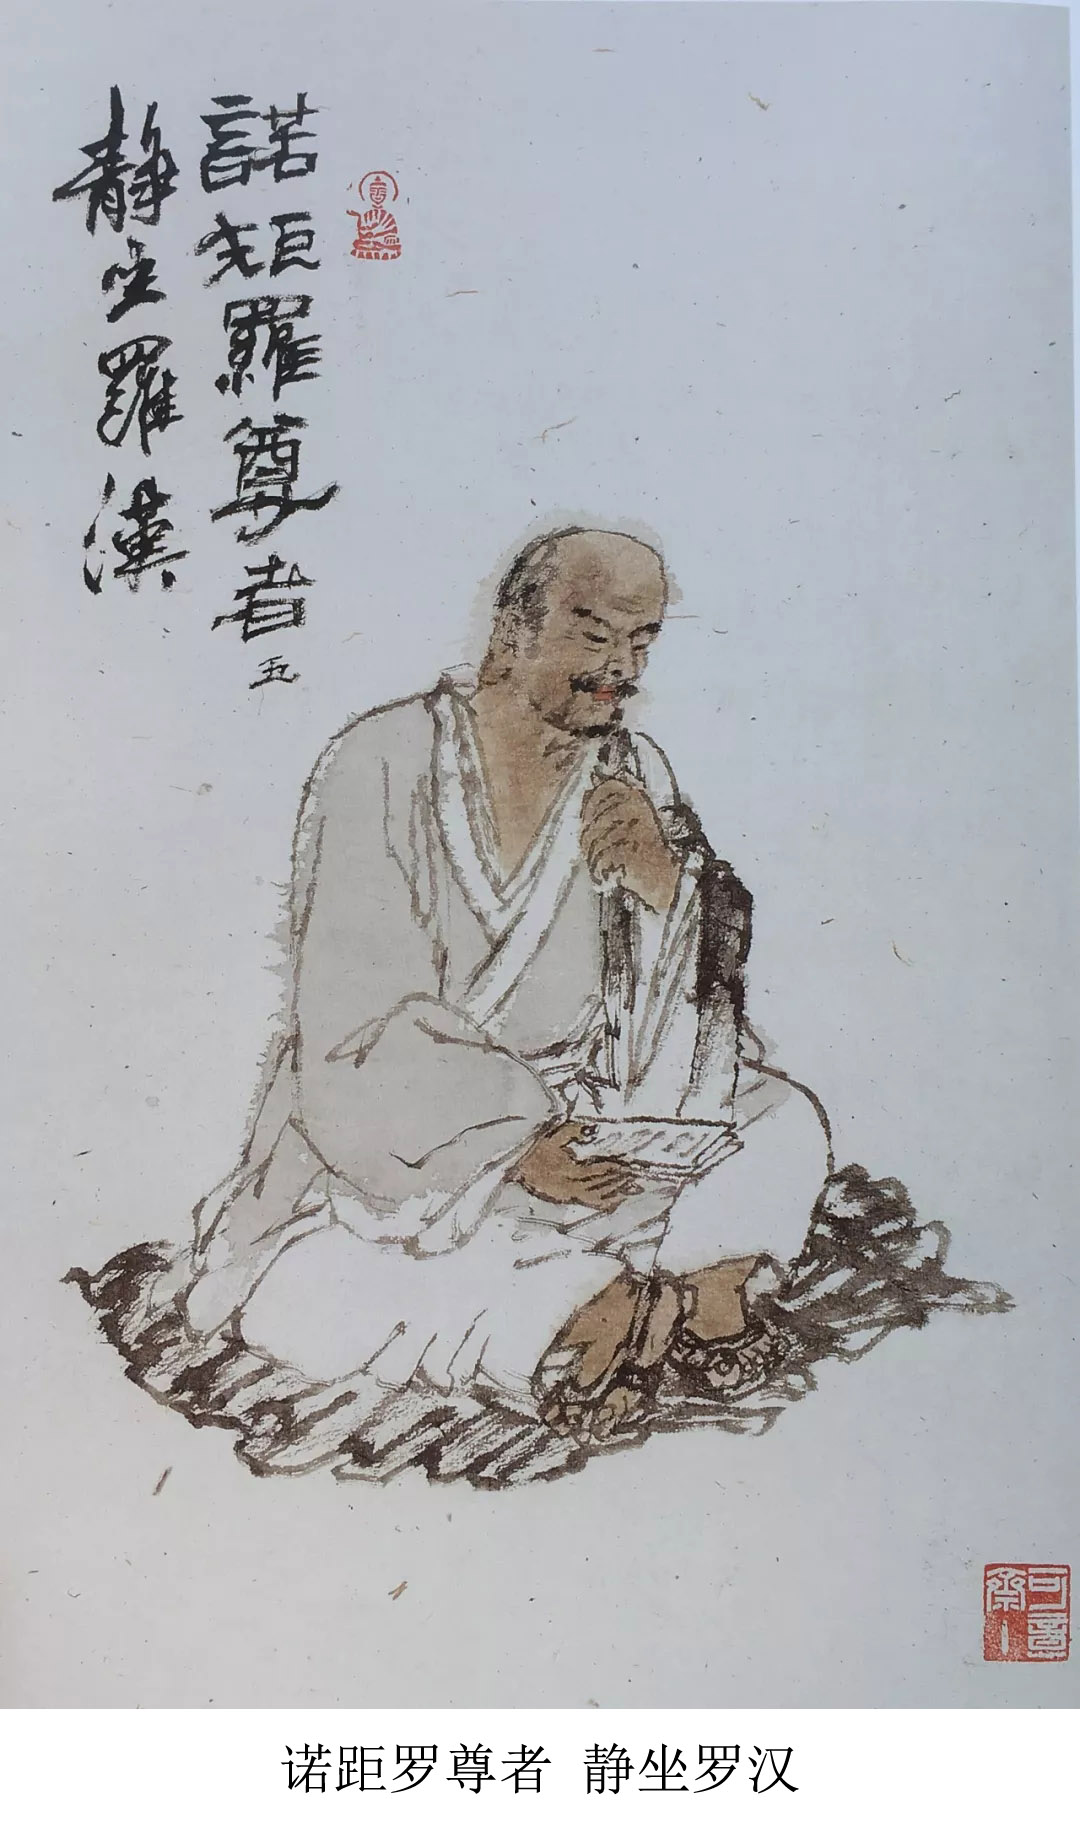 諾矩羅尊者 五
靜坐羅漢
诺距罗尊者 静坐罗汉